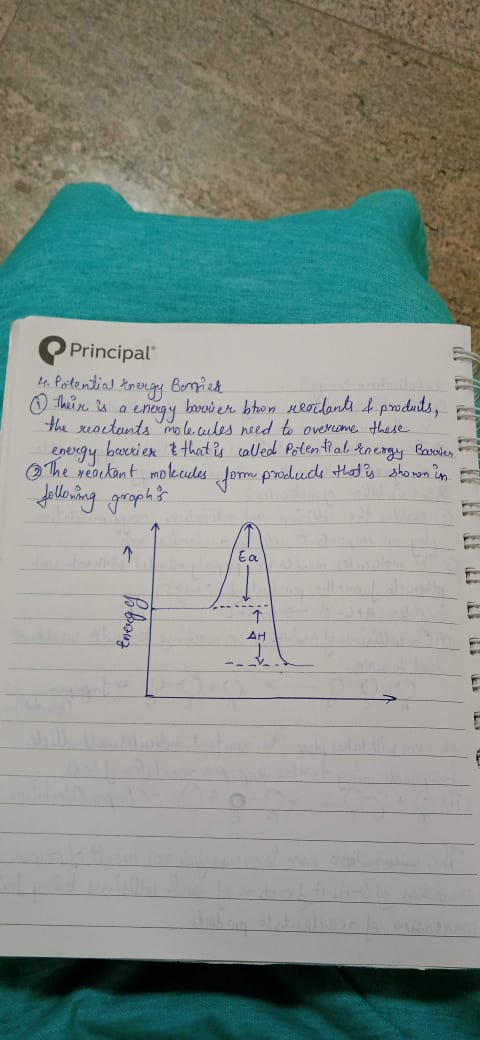 Principal®
4. Potential Energy Barrier
① Their is a energy barrier btwn reactants & products,
the reactants molecules need to overcome these
energy barrier & that is called Potential Energy Barrier.
② The reactant molecules form products that is shown in
following graph:
Energy
Ea
ΔH